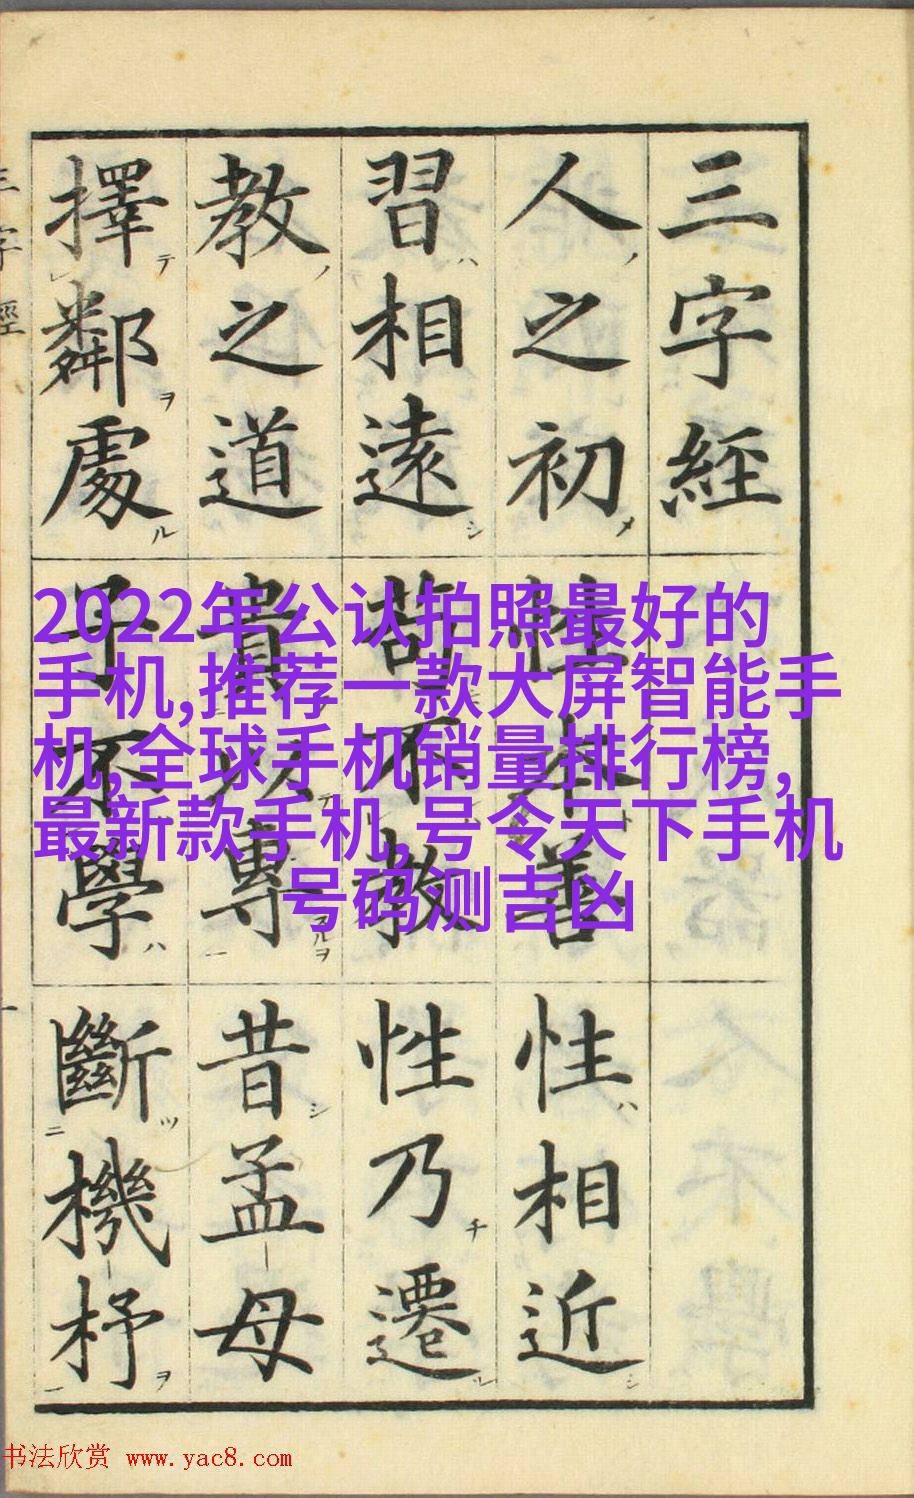 三字經
人之初性本善性相近
習相遠苟不教性乃遷
教之道貴以專昔孟母
擇鄰處子不學斷機杼
三字經
2022年公认拍照最好的
手机,推荐一款大屏智能手
机,全球手机销量排行榜,
最新款手机,号令天下手机
号码测吉凶
书法欣赏 www.yac8.com